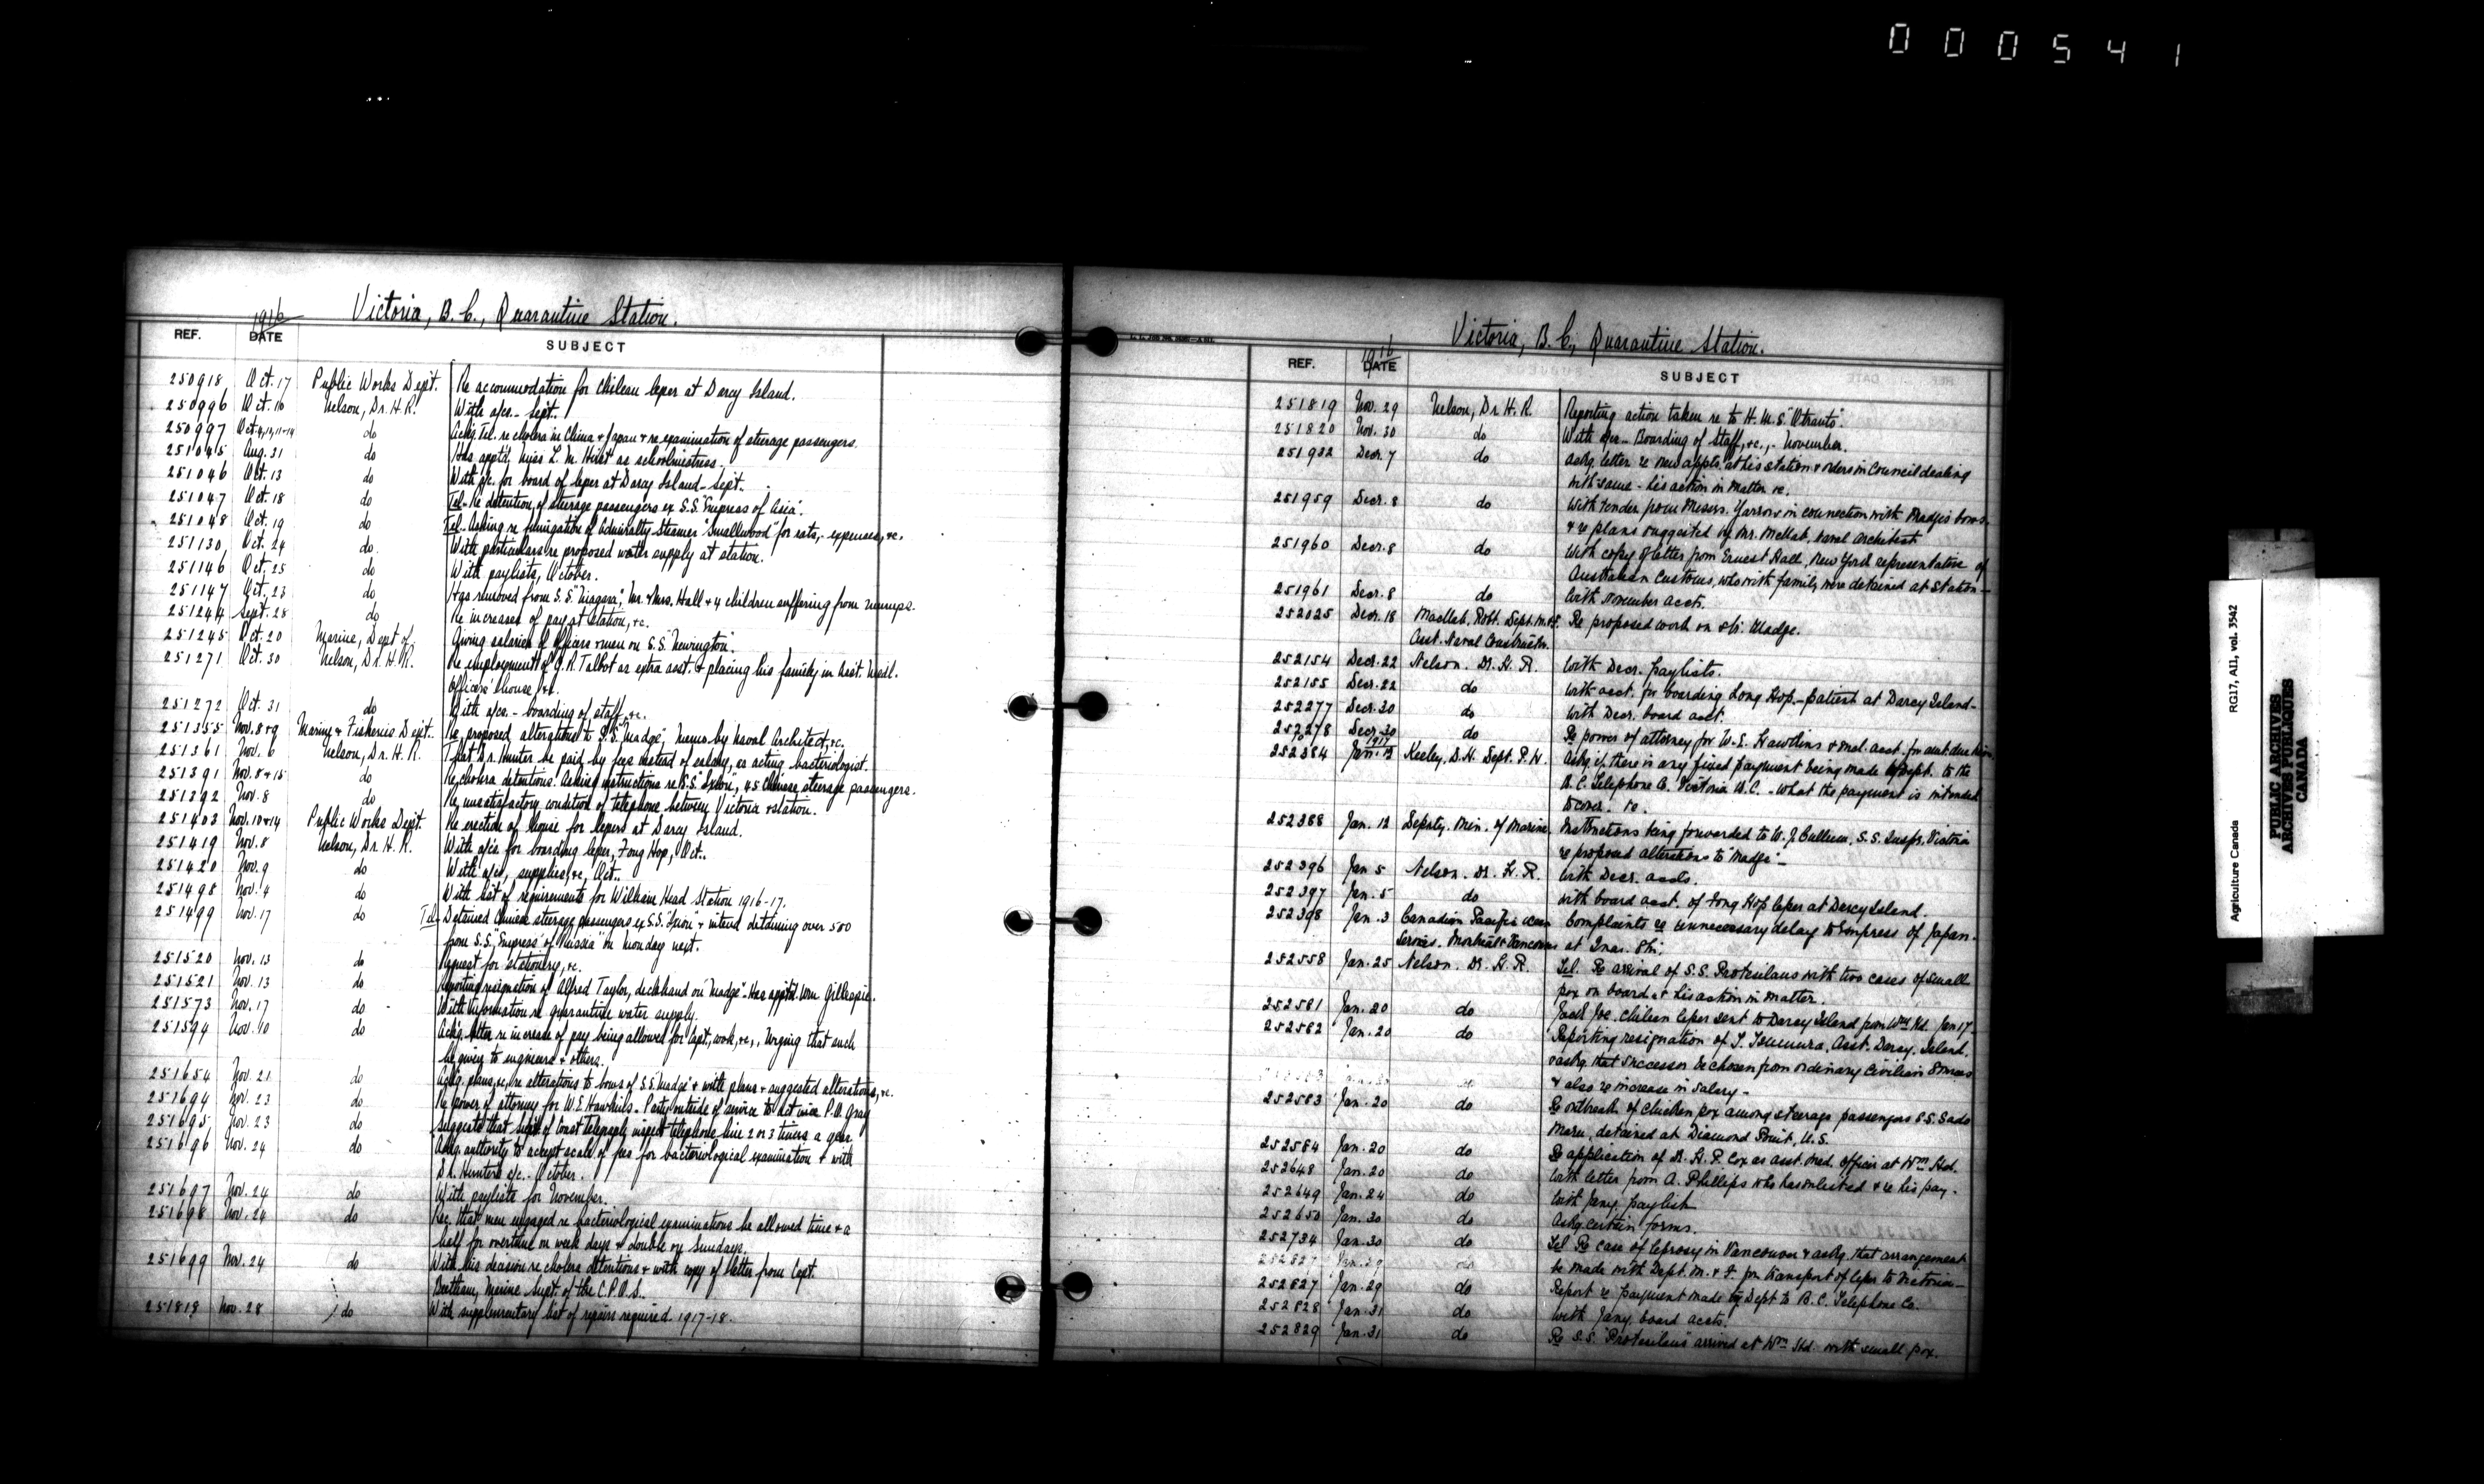 000541
Victoria, B.C., Quarantine Station.
REF. 1916 DATE SUBJECT
250918 Oct. 17 Public Works Dept. Re accommodation for Chilean leper at Darcy Island.
250996 Oct. 10 Nelson, Dr. H.R. With a/cs - Sept.
250997 Oct. 4,12,11+14 do Ackg. Tel. re cholera in China + Japan + re examination of steerage passengers.
251045 Aug. 31 do Has apptd. Miss L. M. Hirst as schoolmistress.
251046 Oct. 13 do With a/c. for board of leper at Darcy Island - Sept.
251047 Oct. 18 do Tel. Re detention of steerage passengers ex S.S. "Empress of Asia".
251048 Oct. 19 do Tel. Asking re fumigation of Admiralty Steamer "Smallwood" for rats, - expenses, +c.
251130 Oct. 24 do With particulars re proposed water supply at station.
251146 Oct. 25 do With paylists, October.
251147 Oct. 23 do Has removed from S.S. "Niagara", Mr. + Mrs. Hall + 4 children suffering from mumps.
251244 Sept. 28 do Re increases of pay at station, +c.
251245 Oct. 20 Marine, Dept. of Giving salaries of officers + men on S.S. "Newington".
251271 Oct. 30 Nelson, Dr. H.R. Re employment of G. R. Talbot as extra asst. + placing his family in Asst. Medl.
Officers' house, +c.
251272 Oct. 31 do With a/cs - boarding of staff, +c.
251355 Nov. 8+9 Marine + Fisheries Dept. Re proposed alterations to S.S. "Madge". Memo by Naval Architect, +c.
251361 Nov. 6 Nelson, Dr. H.R. That Dr. Hunter be paid by fees instead of salary, as acting bacteriologist.
251391 Nov. 8+15 do Re cholera detentions. Asking instructions re S.S. "Ixion", 45 Chinese steerage passengers.
251392 Nov. 8 do Re unsatisfactory condition of telephone between Victoria + station.
251403 Nov. 10+14 Public Works Dept. Re erection of house for lepers at Darcy Island.
251419 Nov. 8 Nelson, Dr. H.R. With a/c for boarding leper, Fong Hop, Oct.
251420 Nov. 9 do With a/cs, supplies, +c, Oct.
251498 Nov. 4 do With list of requirements for William Head Station 1916-17.
251499 Nov. 17 do Tel. Detained Chinese steerage passengers ex S.S. "Ixion" + intend detaining over 500
from S.S. "Empress of Russia" on Monday next.
251520 Nov. 13 do Request for stationery, +c.
251521 Nov. 13 do Reporting resignation of Alfred Taylor, deckhand on "Madge" - Has apptd. Wm. Gillespie.
251573 Nov. 17 do With information re quarantine water supply.
251594 Nov. 10 do Ackg. letter re increase of pay being allowed for Capt., work, +c., Urging that such
be given to engineers + others.
251654 Nov. 21 do Ackg. plans, +c, re alterations to bows of S.S. "Madge" + with plans + suggested alterations, +c.
251694 Nov. 23 do Re power of attorney for W.E. Hawkins. Party outside of service to act vice P.O. Gray
251695 Nov. 23 do Suggests that Supt. of Coast telegraph inspect telephone line 2 or 3 times a year.
251696 Nov. 24 do Ackg. authority to accept scale of fees for bacteriological examination + with
Dr. Hunter's a/c. - October.
251697 Nov. 24 do With paylists for November.
251698 Nov. 24 do Rec. that men engaged re bacteriological examinations be allowed time + a
half for overtime on week days + double on Sundays.
251699 Nov. 24 do With his decision re cholera detentions + with copy of letter from Capt.
Beetham, Marine Supt. of the C.P.O.S.
251818 Nov. 28 do With supplementary list of repairs required. 1917-18.
Victoria, B.C., Quarantine Station.
REF. 1916 DATE SUBJECT
251819 Nov. 29 Nelson, Dr. H.R. Reporting action taken re to H.M.S. "Otranto".
251820 Nov. 30 do With a/cs - Boarding of Staff, +c., - November.
251932 Decr. 7 do Ackg. letter re new appts. at his station + orders in Council dealing
with same - his action in matter +c.
251959 Decr. 8 do With tender from Messrs. Yarrows in connection with Madge's bows.
+ re plans suggested by Mr. McNab, naval architect
251960 Decr. 8 do With copy of letter from Ernest Hall, New York representative of
Australian Customs, who with family were detained at Station -
251961 Decr. 8 do With November accts.
252025 Decr. 18 Macnab, Robt. Dept. M.+F. Re proposed work on str. Madge.
Asst. Naval Constructor.
252154 Decr. 22 Nelson. Dr. H. R. With Decr. paylists.
252155 Decr. 22 do With acct. for boarding Fong Hop. - patient at Darcy Island -
252277 Decr. 30 do With Decr. board acct.
252278 Decr. 30 do Re power of attorney for W.E. Hawkins + mol. acct. for amt. due him.
252384 1917 Jan. Keeley. D.H. Dept. P.W. Askg. if there is any fixed payment being made by Dept. to the
B.C. Telephone Co. Victoria B.C. - what the payment is intended
to cover. +c.
252388 Jan. 12 Deputy. Min. of Marine. Instructions being forwarded to W. J. Cullum, S.S. Inspr. Victoria
re proposed alterations to "Madge" -
252396 Jan. 5 Nelson. Dr. H. R. With Decr. accts.
252397 Jan. 5 do With board acct. of Fong Hop leper at Darcy Island.
252398 Jan. 3 Canadian Pacific Ocean Complaints re unnecessary delay to Empress of Japan -
Services. Montreal + Vancouver at Quar. Stn.
252558 Jan. 25 Nelson. Dr. H. R. Tel. Re arrival of S.S. Protesilaus with two cases of small
pox on board + his action in matter.
252581 Jan. 20 do Joe. Chilean leper sent to Darcy Island from Wm. Hd. Jan 17 -
252582 Jan. 20 do Reporting resignation of Asst. Darcy Island.
+ askg. that successor be chosen from ordinary Civilian Sources
+ also re increase in salary -
252583 Jan. 20 do Re outbreak of chicken pox among steerage passengers S.S. Sado
Maru, detained at Diamond Point, U.S.
252584 Jan. 20 do Re application of Dr. H. P. Cox as asst. med. officer at Wm. Hd.
252648 Jan. 20 do With letter from A. Phillips who has enlisted + re his pay -
252649 Jan. 24 do With Jany. paylist
252650 Jan. 30 do Askg. certain forms.
252734 Jan. 30 do Tel. Re case of leprosy in Vancouver + askg. that arrangement
be made with Dept. M. + F. for transport of leper to Victoria -
252827 Jan. 29 do Report re payment made by Dept to B.C. Telephone Co.
252828 Jan. 31 do With Jany. board accts.
252829 Jan. 31 do Re S.S. "Protesilaus" arrived at Wm. Hd. with small pox.
Agriculture Canada RG17, AII, vol. 3542
PUBLIC ARCHIVES
ARCHIVES PUBLIQUES
CANADA